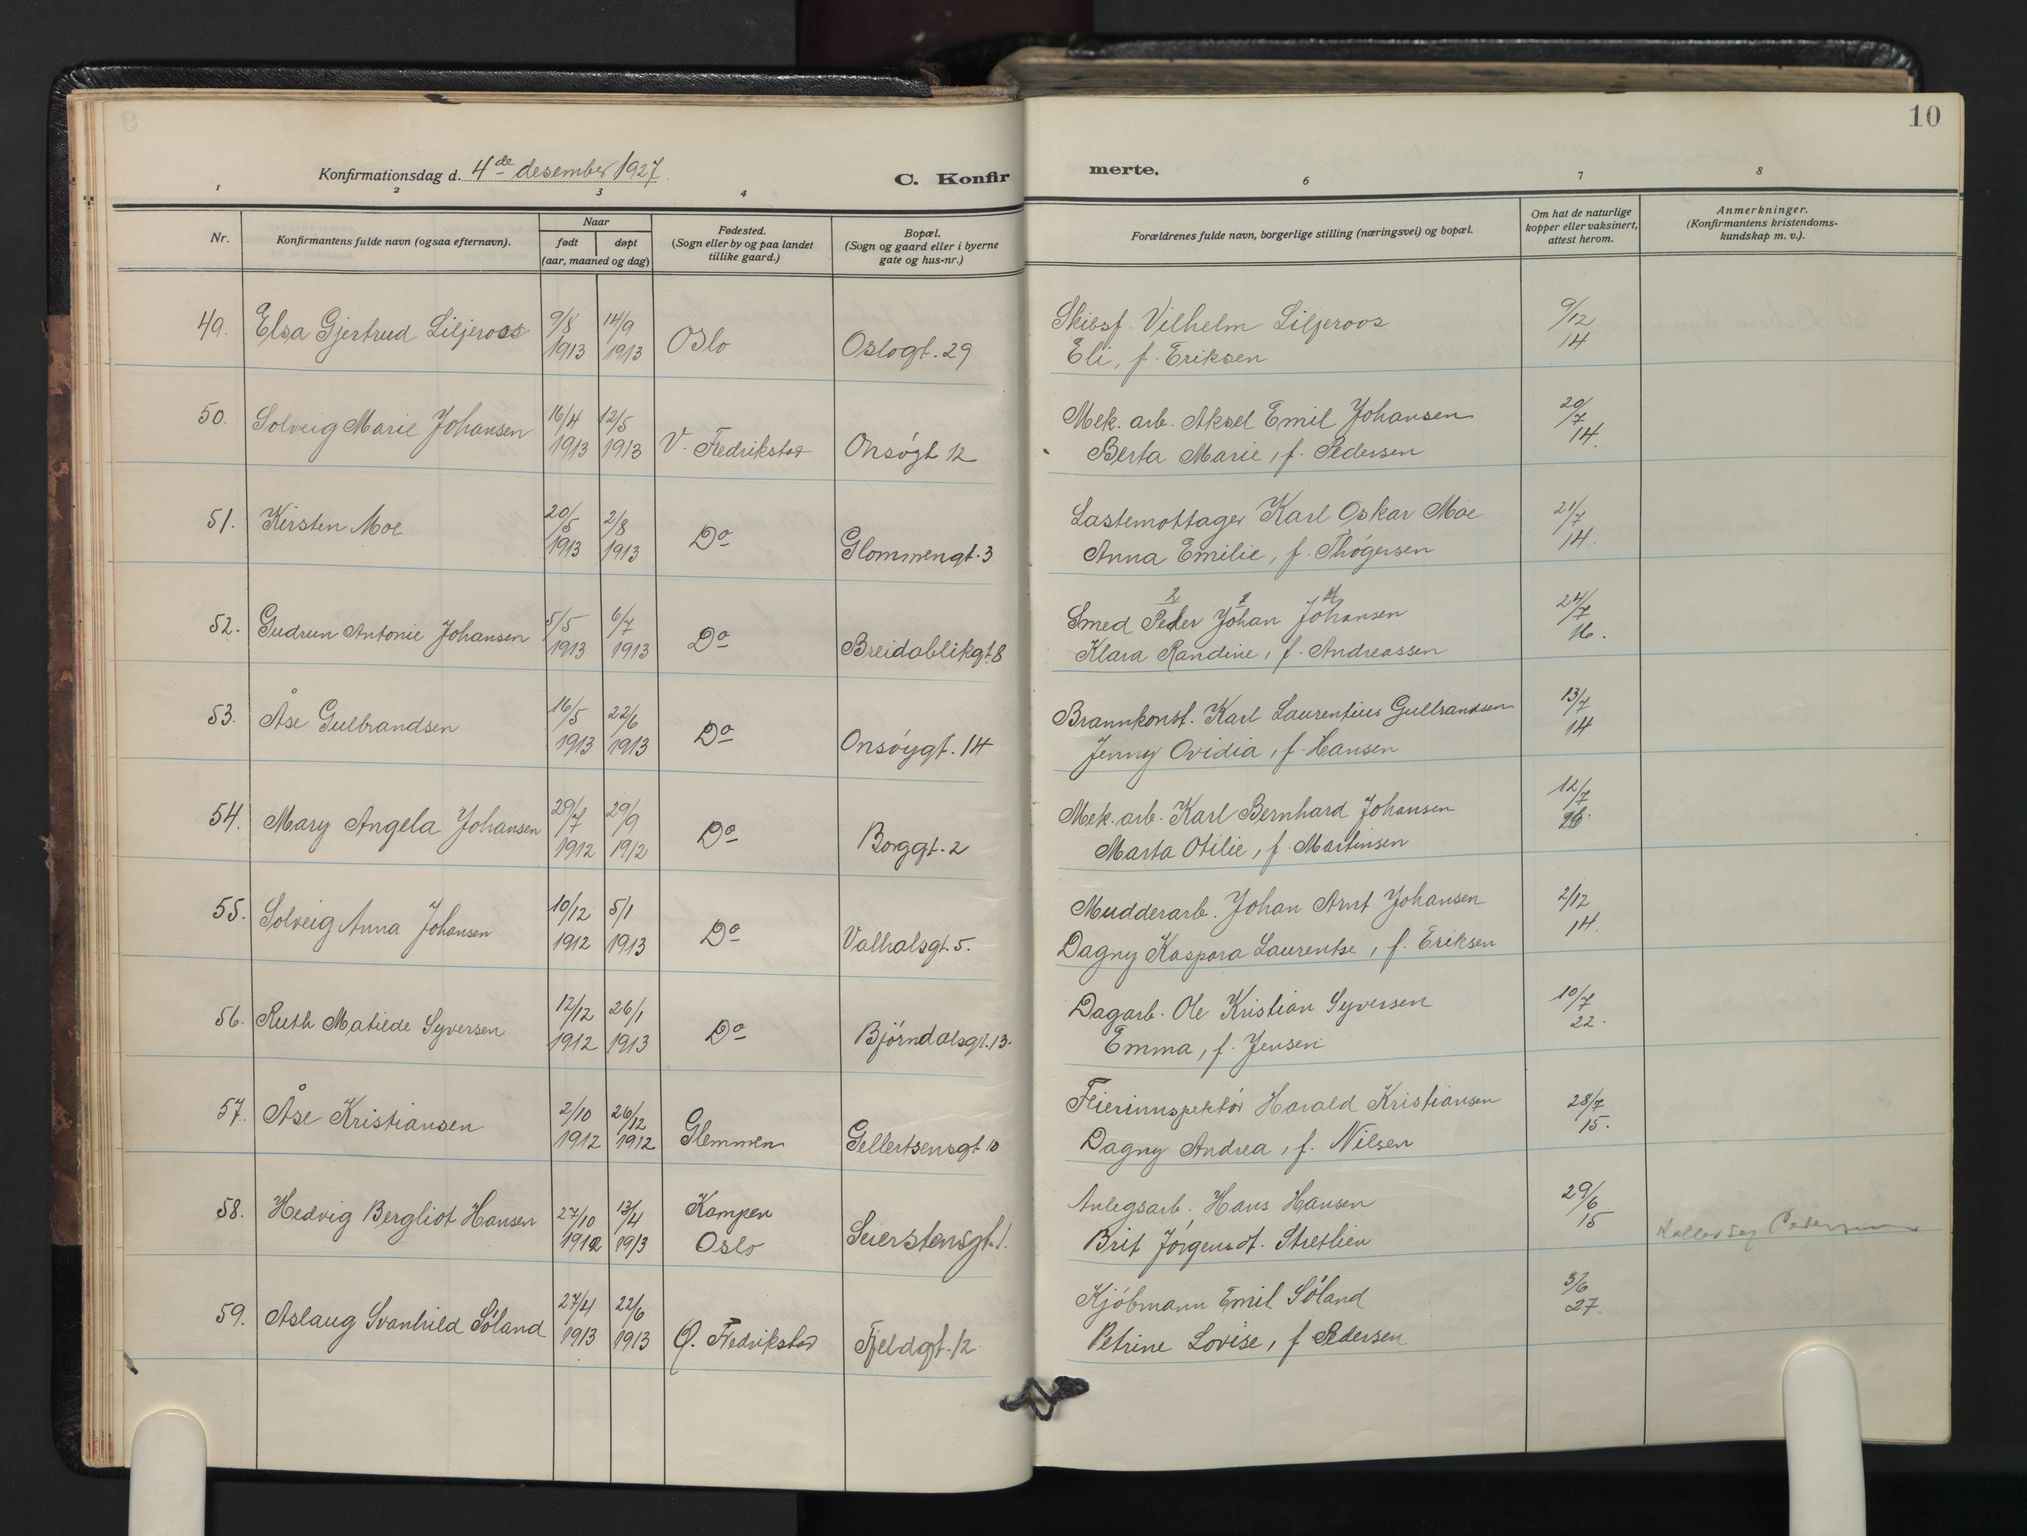 10
Konfirmationsdag d. 4de desember 1927.
C. Konfirmerte.
1 2 3 4 6 7 8
Nr.
Konfirmantens fulde navn (ogsaa efternavn).
Naar
født døpt
(aar, maaned og dag)
Fødested.
(Sogn eller by og paa landet
tillike gaard.)
Bopæl.
(Sogn og gaard eller i byerne
gate og hus-nr.)
Forældrenes fulde navn, borgerlige stilling (næringsvei) og bopæl.
Om hat de naturlige
kopper eller vaksinert,
attest herom.
Anmerkninger.
(Konfirmantens kristendoms-
kundskap m. v.).
49. Elsa Gjertrud Liljeroos 9/8 14/9 Skibsf. Vilhelm Liljeroos 9/12
1913 1913 Oslo Oslogt. 29 Eli, f. Eriksen 14
50. Solveig Marie Johansen 16/4 12/5 Mek. arb. Aksel Emil Johansen 20/7
1913 1913 V. Fredrikstad Onsøgt 12 Berta Marie, f. Pedersen 14.
51. Kirsten Moe 20/5 2/8 Lastemottager Karl Oskar Moe 21/7
1913 1913 Do Glommengt. 3 Anna Emilie, f. Thøgersen 14.
52. Gudrun Antonie Johansen 5/5 6/7 Smed Peder Johan Johansen 24/7
1913 1913 Do Breidablikgt 8 Klara Randine, f. Andreassen 16.
53. Åse Gulbrandsen 16/5 22/6 Brannkonst. Karl Laurentius Gulbrandsen 13/7
1913 1913 Do Onsøygt. 14 Jenny Ovidia, f. Hansen 14
54. Mary Angela Johansen 29/7 29/9 Mek. arb. Karl Bernhard Johansen 12/7
1912 1912 Do Borggt. 2 Marta Otilie, f. Martinsen
55. Solveig Anna Johansen 10/12 5/1 Mudderarb. Johan Arnt Johansen 2/12
1912 1913 Do Valhalsgt. 5. Dagny Kaspara Laurentse, f. Eriksen 14.
56. Ruth Matilde Syversen 12/12 26/1 Dagarb. Ole Kristian Syversen 10/7
1912 1913 Do Bjørndalsgt. 13. Emma, f. Jensen 22.
57. Åse Kristiansen 2/10 26/12 Feierinnspektør Harald Kristiansen 28/7
1912 1912 Glemmen Gellertsensgt 10 Dagny Andrea, f. Nilsen 15.
58. Hedvig Bergliot Hansen 27/10 13/4 Kampen Anlegsarb. Hans Hansen 29/6
1912 1913 Oslo Seierstensgt. 1. Brit Jørgensdt. Stretlien 15 Kaller seg Pedersen
59. Aslaug Svanhild Søland 27/4 22/6 Kjøbmann Emil Søland 3/6
1913 1913 Ø. Fredrikstad Fjeldgt. 12 Petrine Lovise, f Pedersen 27.